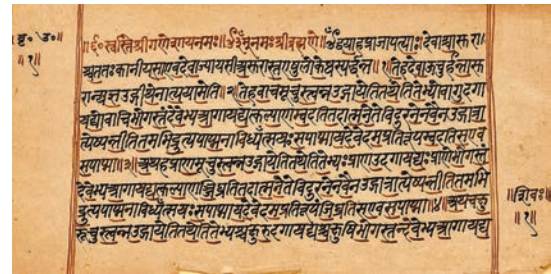 बृ॰ उ॰॥
॥१॥
स्वस्तिश्रीगणेशायनमः॥ॐनमःश्रीब्रह्मणे॥ॐद्वयाहप्राजापत्याःदेवाश्चासुरा
श्चततःकानीयसाएवदेवाज्यायसाअसुरास्तएषुलोकेष्वस्पर्द्धन्त॥१तेहदेवाऊचुर्हन्तासु
रान्यज्ञउद्गीथेनात्ययामेति॥२तेहवाचमूचुस्त्वन्नउद्गायेतितथेतितेभ्योवागुदगा
यद्योवाचिभोगस्तंदेवेभ्यआगायद्यत्कल्याणम्वदतितदात्मनेतेविदुरनेनवैनउद्गात्रा
त्येष्यन्तीतितमभिद्रुत्यपाप्मनाविध्यंत्सयःसपाप्मायदेवेदमप्रतिरूपम्वदतिसएव
सपाप्मा॥३॥अथहप्राणमूचुस्त्वन्नउद्गायेतितथेतितेभ्यःप्राणउदगायद्यःप्राणेभोगस्तं
देवेभ्यआगायद्यत्कल्याणञ्जिघ्रतितदात्मनेतेविदुरनेनवैनउद्गात्रात्येष्यन्तीतितमभि
द्रुत्यपाप्मनाविध्यंत्सयःसपाप्मायदेवेदमप्रतिरूपंजिघ्रतिसएवसपाप्मा॥४॥अथचक्षु
रूचुस्त्वन्नउद्गायेतितथेतितेभ्यश्चक्षुरुदगायद्यश्चक्षुषिभोगस्तन्देवेभ्यआगायद्य
॥शिवः॥
॥१॥